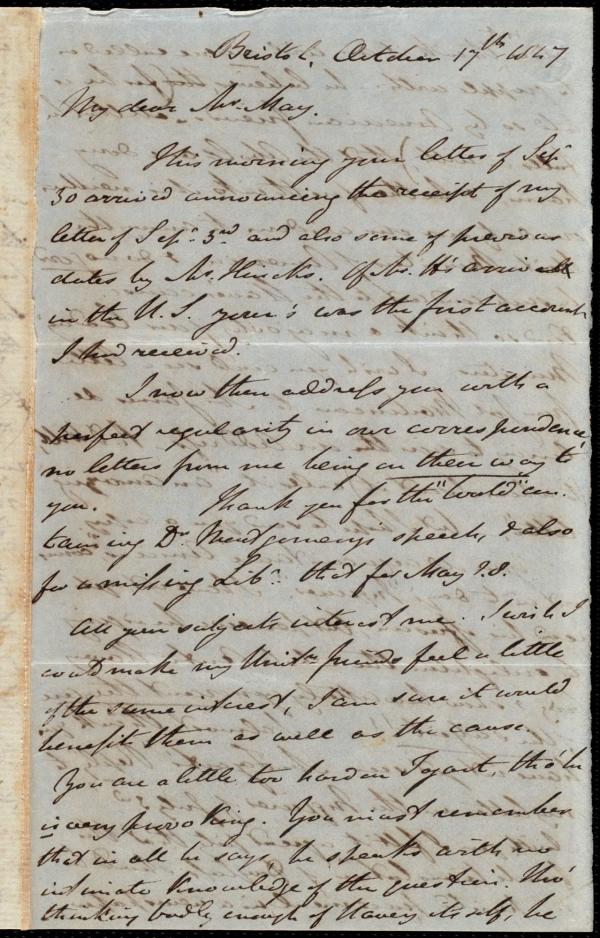 Bristol, October 17th 1847
My dear Mr. May.
This morning your letter of Sep.
30 arrived announcing the receipt of my
letter of Sep. 3rd and also some of previous
dates by Mr. Hincks. Of Mr. H's arrival
in the U.S. your's was the first account
I had received.
I now then address you with a
perfect regularity in our correspondence,
no letters from me being on their way to
you. Thank you for the "World" con-
taining Dr. Montgomery's speech, & also
for a missing Libr. that for May 28.
All your subjects interest me. I wish I
could make my Unitn friends feel a little
of the same interest, I am sure it would
benefit them as well as the cause.
You are a little too hard on Tagart, tho' he
is very provoking. You must remember
that in all he says, he speaks with no
intimate knowledge of the question. Tho'
thinking badly enough of slavery itself, he